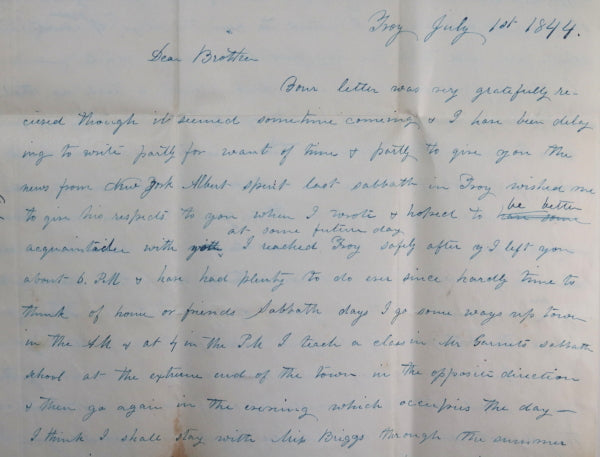 Troy July 1st 1844.
Dear Brother
Your letter was very gratefully re-
cieved though it seemed sometime comeing & I have been delay
ing to write partly for want of time & partly to give you the
news from New York Albert spent last sabbath in Troy wished me
to give his respects to you when I wrote & hoped to be better
at some future day
acquainted with you. I reached Troy safely after I left you
about 6. P.M & have had plenty to do ever since hardly time to
think of home or friends Sabbath days I go some ways up town
in the A.M & at 4 in the P.M I teach a class in Mr Garnets sabbath
school at the extreme end of the town in the opposite direction
& then go again in the evening which occupies the day —
I think I shall stay with Miss Briggs through the summer